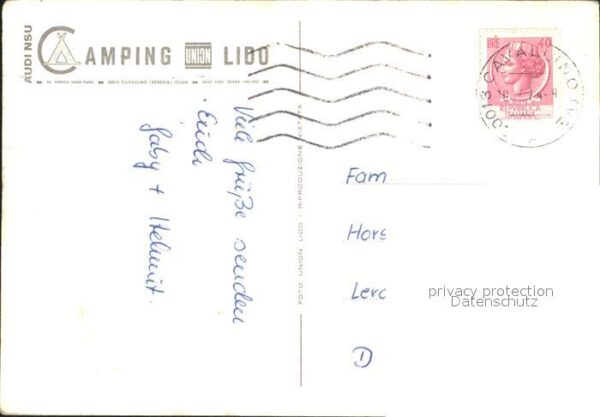 AUDI NSU
CAMPING UNION LIDO
Viele Grüße senden
Euch
Gaby + Helmut.
FOTO UNION LIDO - RIPRODUZIONE VIETATA
LIRE 40
REPVBBLICA
ITALIANA
30013 CAVALLINO (VE)
Fam
Hors
Lerc
D
privacy protection
Datenschutz